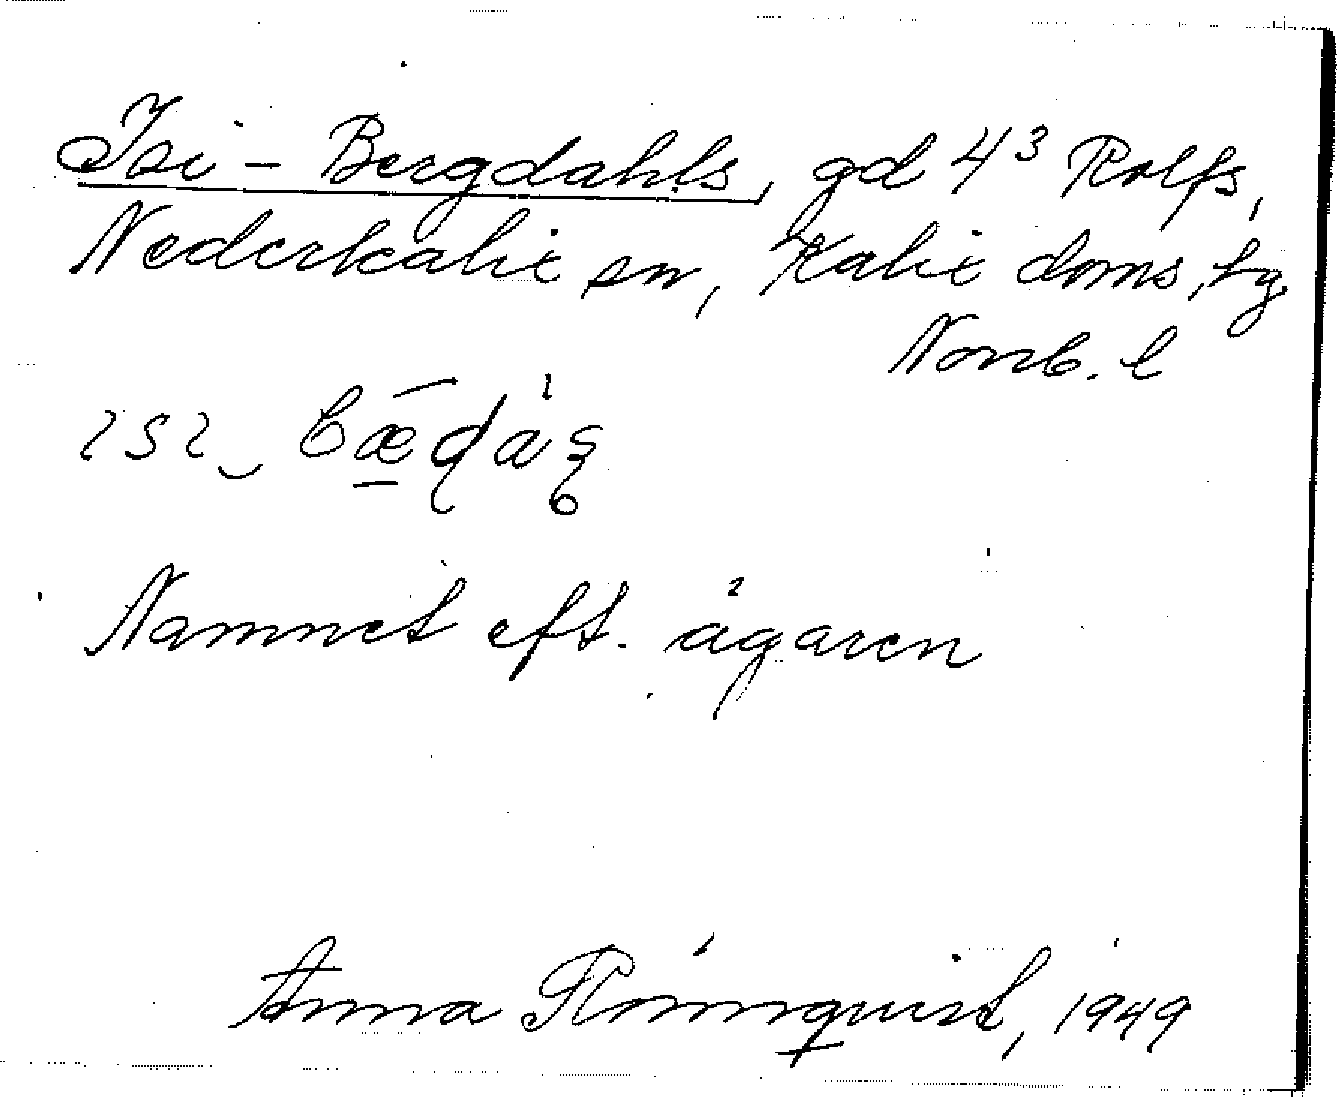 Isi-Bergdahls, gd 4³ Rolfs,
Nederkalix sn, Kalix doms, hg
Norrb. l
Namnet eft. ägaren
Anna Rönnquist, 1949